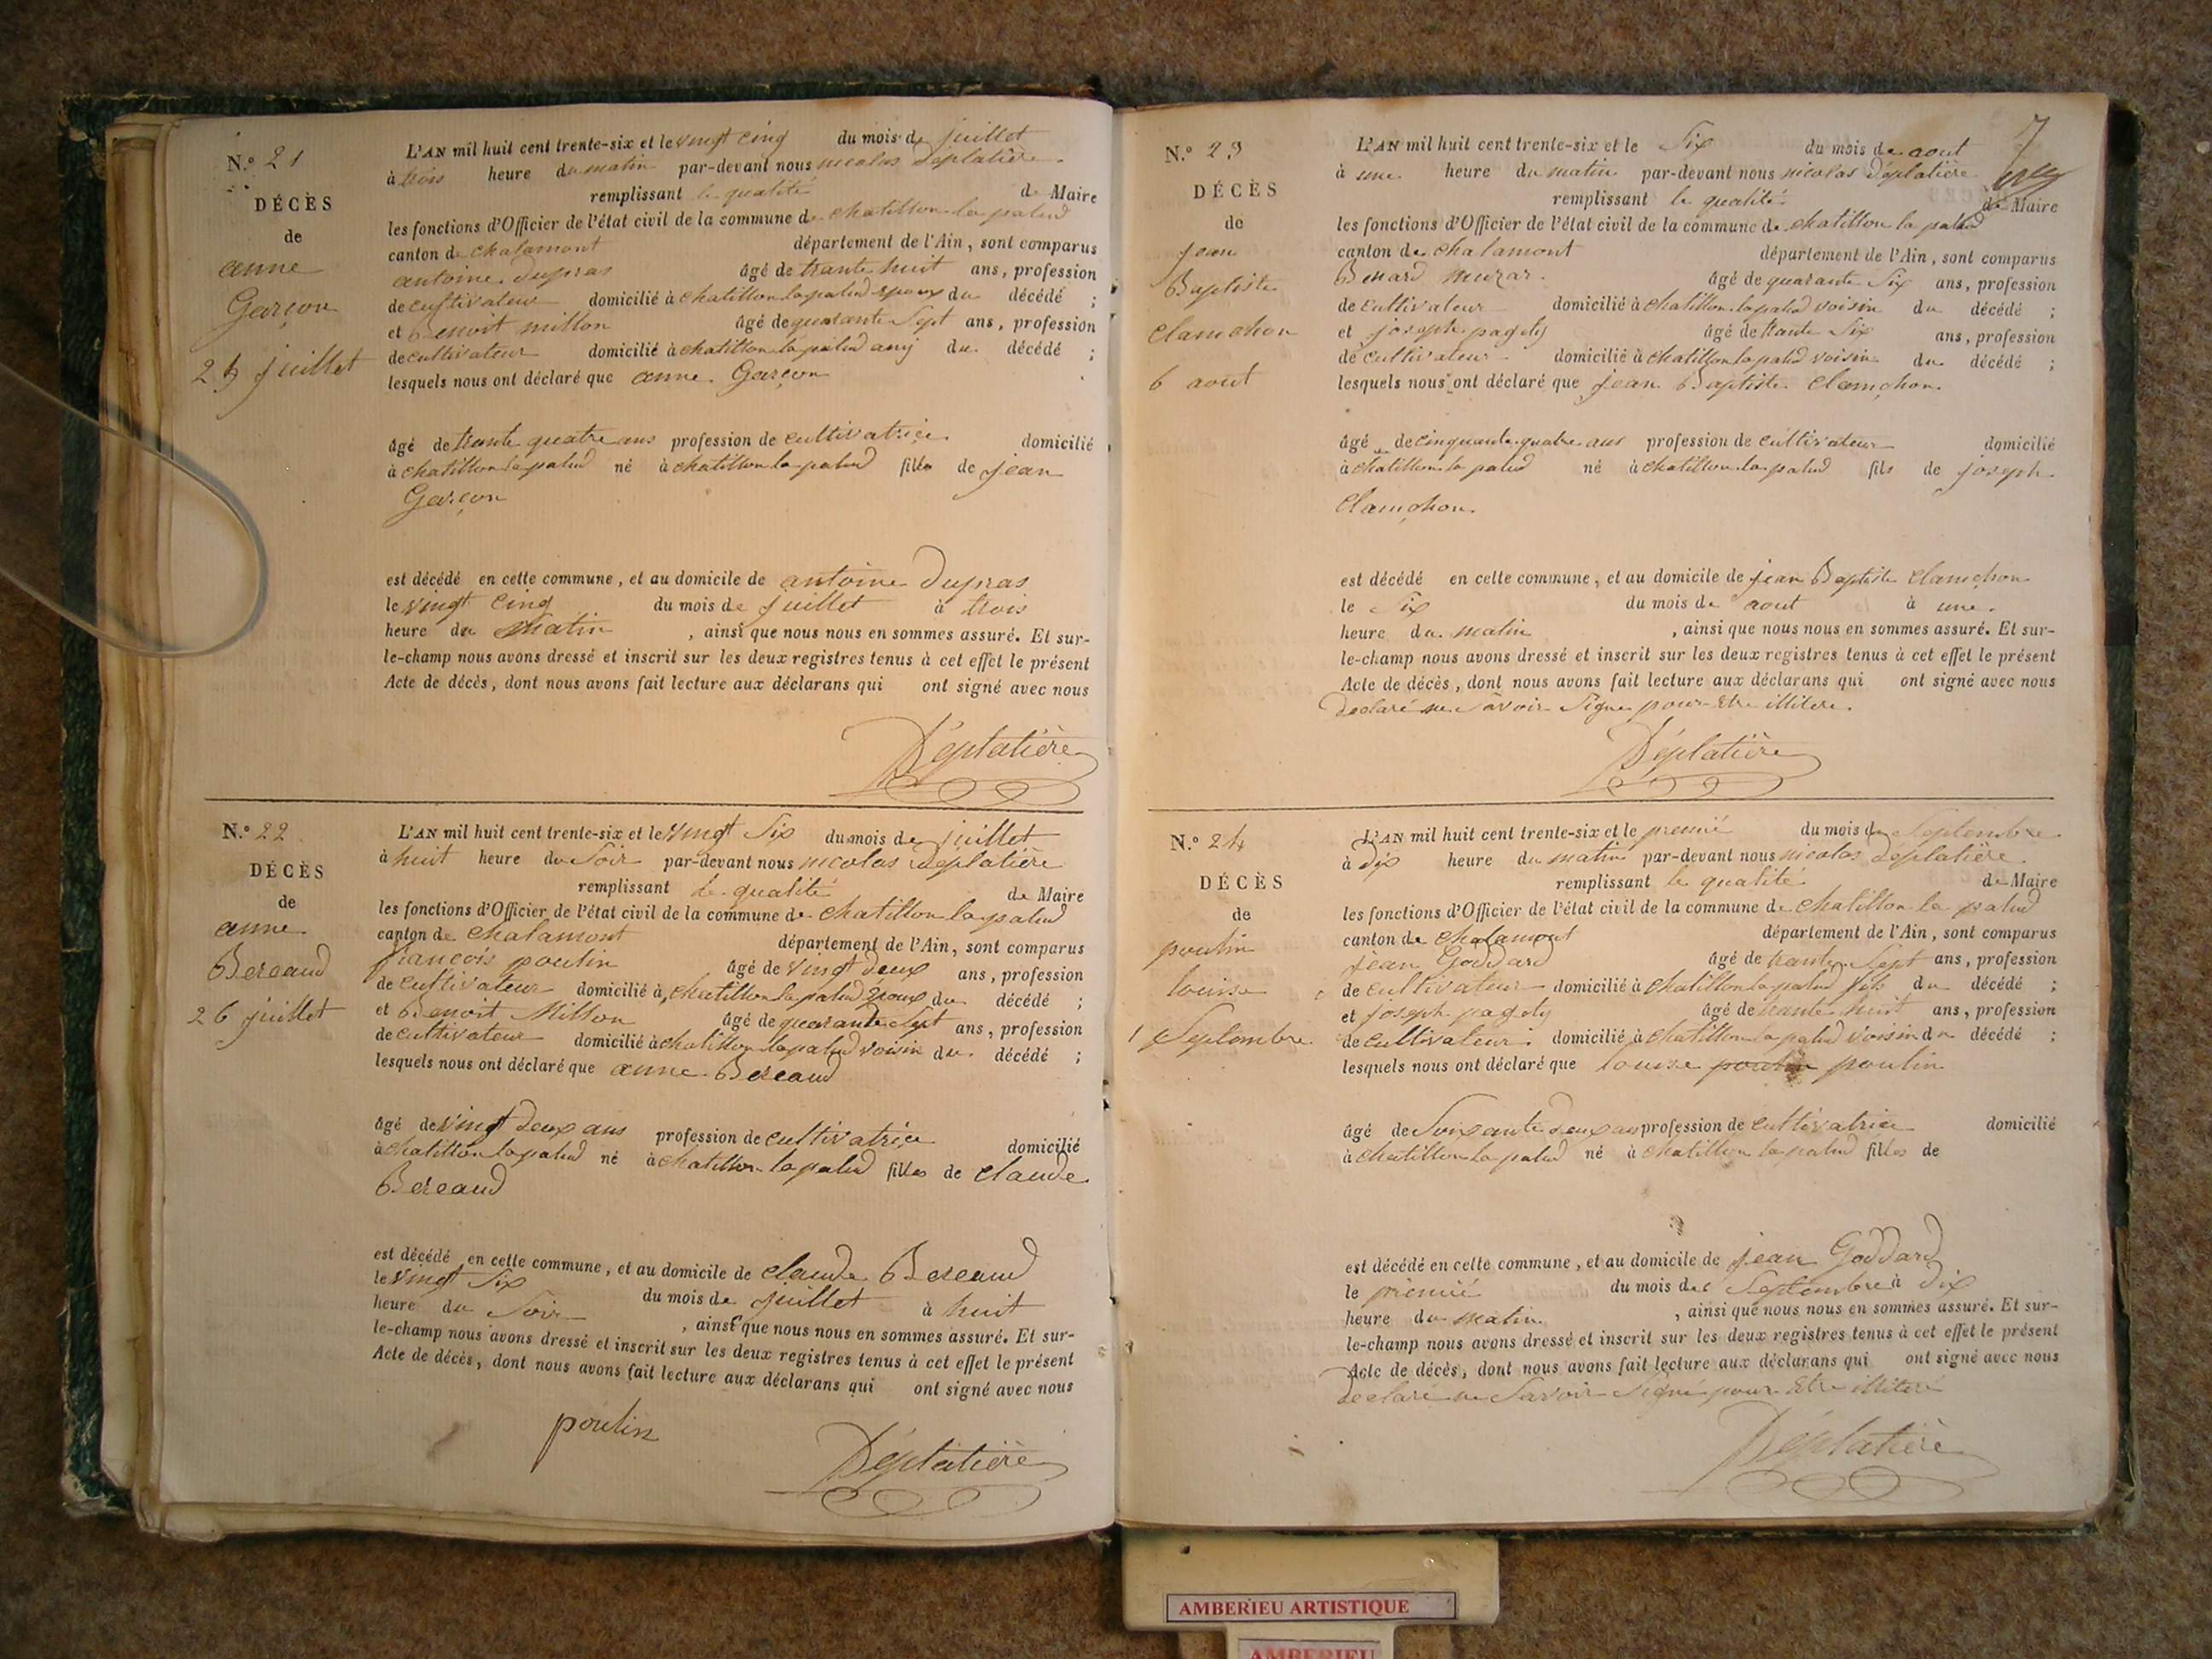 N.º 21
DÉCÈS
de
anne
Garçon
25 juillet
L'AN mil huit cent trente-six et le vingt cinq du mois de juillet
à trois heure du matin par-devant nous nicolas Déplatière
remplissant le qualité de Maire
les fonctions d'Officier de l'état civil de la commune de chatillon la palud
canton de chalamont département de l'Ain, sont comparus
antoine Dupras âgé de trante huit ans, profession
de cultivateur domicilié à chatillon la palud epoux du décédé ;
et Benoit millon âgé de quarante Sept ans, profession
de cultivateur domicilié à chatillon la palud amy du décédé ;
lesquels nous ont déclaré que anne Garçon
âgé de trante quatre ans profession de cultivatrice domicilié
à chatillon la palud né à chatillon la palud filles de jean
Garçon
est décédé en cette commune, et au domicile de antoine Dupras
le vingt cinq du mois de juillet à trois
heure du matin , ainsi que nous nous en sommes assuré. Et sur-
le-champ nous avons dressé et inscrit sur les deux registres tenus à cet effet le présent
Acte de décès, dont nous avons fait lecture aux déclarans qui ont signé avec nous
Déplatière
N.º 22
DÉCÈS
de
anne
Bereaud
26 juillet
L'AN mil huit cent trente-six et le vingt Six du mois de juillet
à huit heure du Soir par-devant nous nicolas Déplatière
remplissant le qualité de Maire
les fonctions d'Officier de l'état civil de la commune de chatillon la palud
canton de chalamont département de l'Ain, sont comparus
francois poulin âgé de vingt deux ans, profession
de cultivateur domicilié à chatillon la palud Epoux du décédé ;
et Benoit Millon âgé de quarante Sept ans, profession
de cultivateur domicilié à chatillon la palud voisin du décédé ;
lesquels nous ont déclaré que anne Bereaud
âgé de vingt deux ans profession de cultivatrice domicilié
à chatillon la palud né à chatillon la palud filles de claude
Bereaud
est décédé en cette commune, et au domicile de claude Bereaud
le vingt Six du mois de juillet à huit
heure du Soir , ainsi que nous nous en sommes assuré. Et sur-
le-champ nous avons dressé et inscrit sur les deux registres tenus à cet effet le présent
Acte de décès, dont nous avons fait lecture aux déclarans qui ont signé avec nous
poulin
Déplatière
7
N.º 23
DÉCÈS
de
jean
Baptiste
clamchon
6 aout
L'AN mil huit cent trente-six et le Six du mois de aout
à une heure du matin par-devant nous nicolas Déplatière
remplissant le qualité de Maire
les fonctions d'Officier de l'état civil de la commune de chatillon la palud
canton de chalamont département de l'Ain, sont comparus
Benard murar âgé de quarante Six ans, profession
de cultivateur domicilié à chatillon la palud voisin du décédé ;
et joseph pagoty âgé de trante Six ans, profession
de cultivateur domicilié à chatillon la palud voisin du décédé ;
lesquels nous ont déclaré que jean Baptiste clamchon
âgé de cinquante quatre ans profession de cultivateur domicilié
à chatillon la palud né à chatillon la palud fils de joseph
clamchon
est décédé en cette commune, et au domicile de jean Baptiste clamchon
le Six du mois de aout à une
heure du matin , ainsi que nous nous en sommes assuré. Et sur-
le-champ nous avons dressé et inscrit sur les deux registres tenus à cet effet le présent
Acte de décès, dont nous avons fait lecture aux déclarans qui ont signé avec nous
declaré ne Savoir Signe pour Etre illitere
Déplatière
N.º 24
DÉCÈS
de
poulin
louise
1 Septembre
L'AN mil huit cent trente-six et le premié du mois de Septembre
à dix heure du matin par-devant nous nicolas Déplatière
remplissant le qualité de Maire
les fonctions d'Officier de l'état civil de la commune de chatillon la palud
canton de chalamont département de l'Ain, sont comparus
jean Goddard âgé de trante Sept ans, profession
de cultivateur domicilié à chatillon la palud fils du décédé ;
et joseph pagoty âgé de trante huit ans, profession
de cultivateur domicilié à chatillon la palud voisin du décédé ;
lesquels nous ont déclaré que louise poulin poulin
âgé de Soixante deux ans profession de cultivatrice domicilié
à chatillon la palud né à chatillon la palud filles de
est décédé en cette commune, et au domicile de jean Goddard
le premié du mois de Septembre à Dix
heure du matin , ainsi que nous nous en sommes assuré. Et sur-
le-champ nous avons dressé et inscrit sur les deux registres tenus à cet effet le présent
Acte de décès, dont nous avons fait lecture aux déclarans qui ont signé avec nous
declaré ne Savoir Signé pour Etre illiteré
Déplatière
AMBERIEU ARTISTIQUE
AMBERIEU